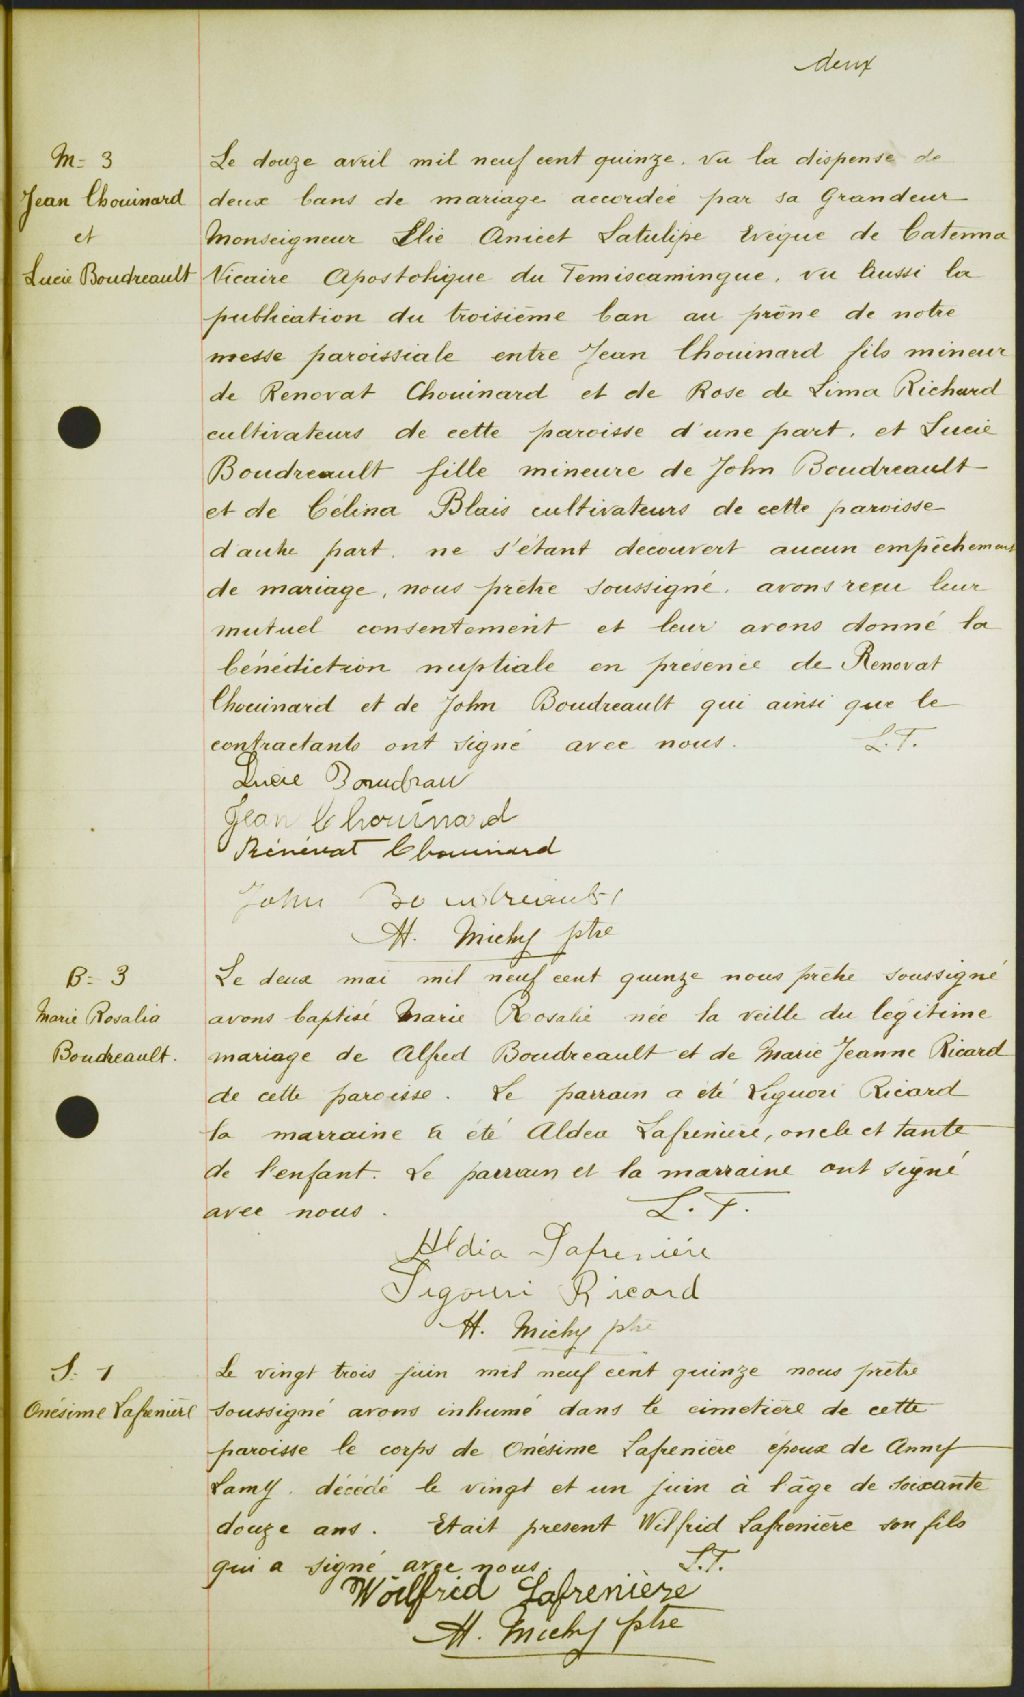 deux
M = 3
Jean Chouinard
et
Lucie Boudreault
Le douze avril mil neuf cent quinze. vu la dispense de
deux bans de mariage accordée par sa Grandeur
Monseigneur Elie Anicet Latulipe Evêque de Catenna
Vicaire Apostolique du Temiscamingue, vu aussi la
publication du troisième ban au prône de notre
messe paroissiale entre Jean Chouinard fils mineur
de Renovat Chouinard et de Rose de Lima Richard
cultivateurs de cette paroisse d'une part, et Lucie
Boudreault fille mineure de John Boudreault
et de Célina Blais cultivateurs de cette paroisse
d'autre part. ne s'étant decouvert aucun empêchement
de mariage, nous prêtre soussigné, avons reçu leur
mutuel consentement et leur avons donné la
bénédiction nuptiale en présence de Renovat
Chouinard et de John Boudreault qui ainsi que le
contractants ont signé avec nous. L.T.
Lucie Boudrau
Jean Chouinard
Rénévat Chouinard
John Boudreault
H. Michy ptre
B = 3
Marie Rosalia
Boudreault.
Le deux mai mil neuf cent quinze nous prêtre soussigné
avons baptisé Marie Rosalie née la veille du légitime
mariage de Alfred Boudreault et de Marie Jeanne Ricard
de cette paroisse. Le parrain a été Liguori Ricard
la marraine a été Aldea Lafrenière, oncle et tante
de l'enfant. Le parrain et la marraine ont signé
avec nous. L.T.
Aldia Lafreniére
Ligouri Ricard
H. Michy ptre
S. 1
Onésime Lafrenière
Le vingt trois juin mil neuf cent quinze nous prêtre
soussigné avons inhumé dans le cimetière de cette
paroisse le corps de Onésime Lafrenière époux de Anny
Lamy. décédé le vingt et un juin à l'âge de soixante
douze ans. Etait present Wilfrid Lafrenière son fils
qui a signé avec nous. L.T.
Woilfrid Lafrenière
H. Michy ptre